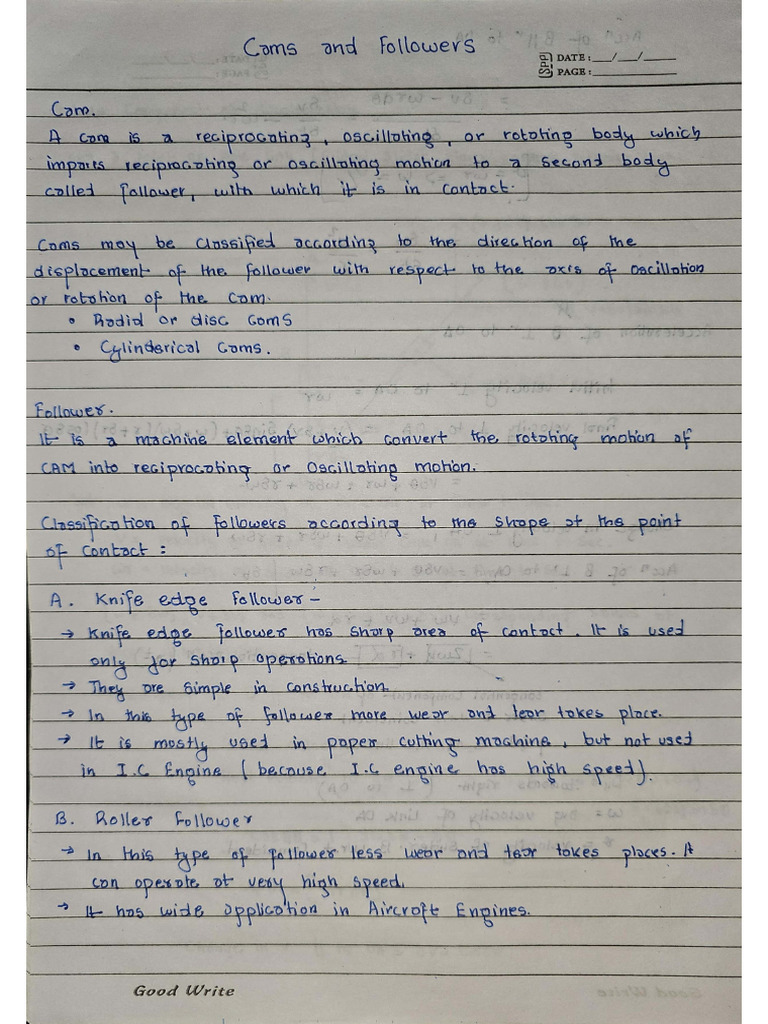 Cams and Followers
Spp DATE:__/__/____
PAGE:________
Cam.
A cam is a reciprocating, oscillating, or rotating body which
imparts reciprocating or oscillating motion to a second body
called follower, with which it is in contact.
Cams may be classified according to the direction of the
displacement of the follower with respect to the axis of oscillation
or rotation of the cam.
• Radial or disc cams
• Cylinderical cams.
Follower.
It is a machine element which convert the rotating motion of
CAM into reciprocating or oscillating motion.
Classification of followers according to the shape at the point
of contact :
A. Knife edge follower -
→ Knife edge follower has sharp area of contact. It is used
only for sharp operations.
→ They are simple in construction.
→ In this type of follower more wear and tear takes place.
→ It is mostly used in paper cutting machine, but not used
in I.C Engine (because I.C engine has high speed).
B. Roller Follower
→ In this type of follower less wear and tear takes places. It
can operate at very high speed.
→ It has wide application in Aircroft Engines.
Good Write